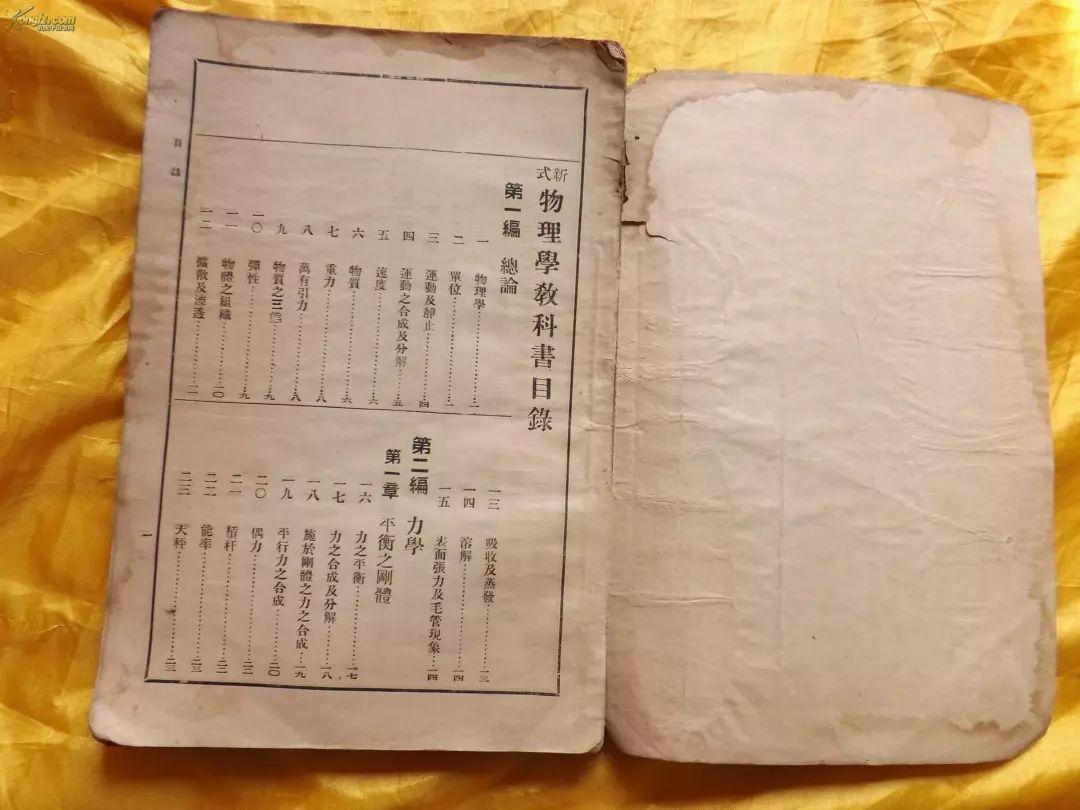 新式
物理學教科書目錄
第一編 總論
一 物理學……一
二 單位……一
三 運動及靜止……四
四 運動之合成及分解……五
五 速度……六
六 物質……六
七 重力……八
八 萬有引力……八
九 物質之三態……九
一〇 彈性……九
一一 物體之組織……一〇
一二 擴散及滲透……一一
一三 吸收及蒸發……一三
一四 溶解……一四
一五 表面張力及毛管現象……一四
第二編 力學
第一章 平衡之剛體
一六 力之平衡……一七
一七 力之合成及分解……一八
一八 施於剛體之力之合成……一九
一九 平行力之合成……二〇
二〇 偶力
二一 槓杆
二二 能率……二三
二三 天秤……二三
目錄
一
Kongfz.com